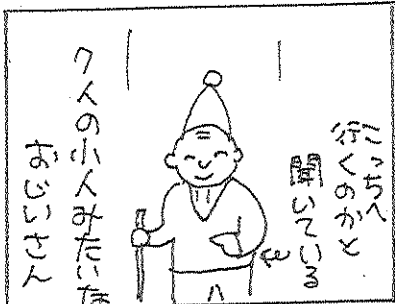 こっちへ
行くのかと
聞いている
7人の小人みたいな
おじいさん